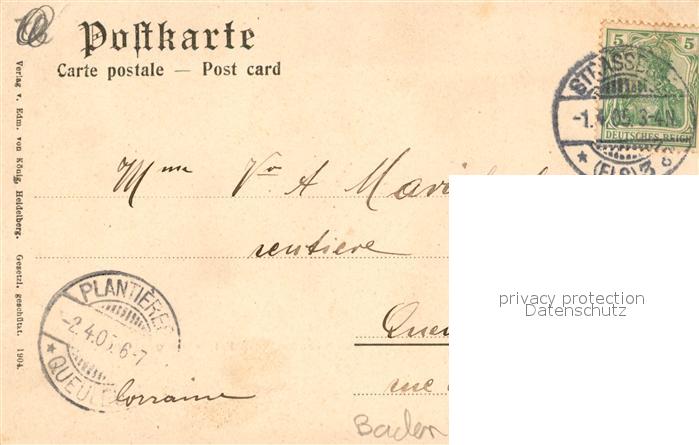 Postkarte
Carte postale — Post card
5 5
DEUTSCHES REICH
STRASSB
-1.4.05. 3-4N.
* (ELS) 3
Verlag v. Edm. von König, Heidelberg. Gesetzl. geschützt. 1904.
Mme Ve A
rentiere
Queu
rue
Lorraine
PLANTIÈRES
-2.4.05. 6-7
* QUEULE
privacy protection
Datenschutz
Baden